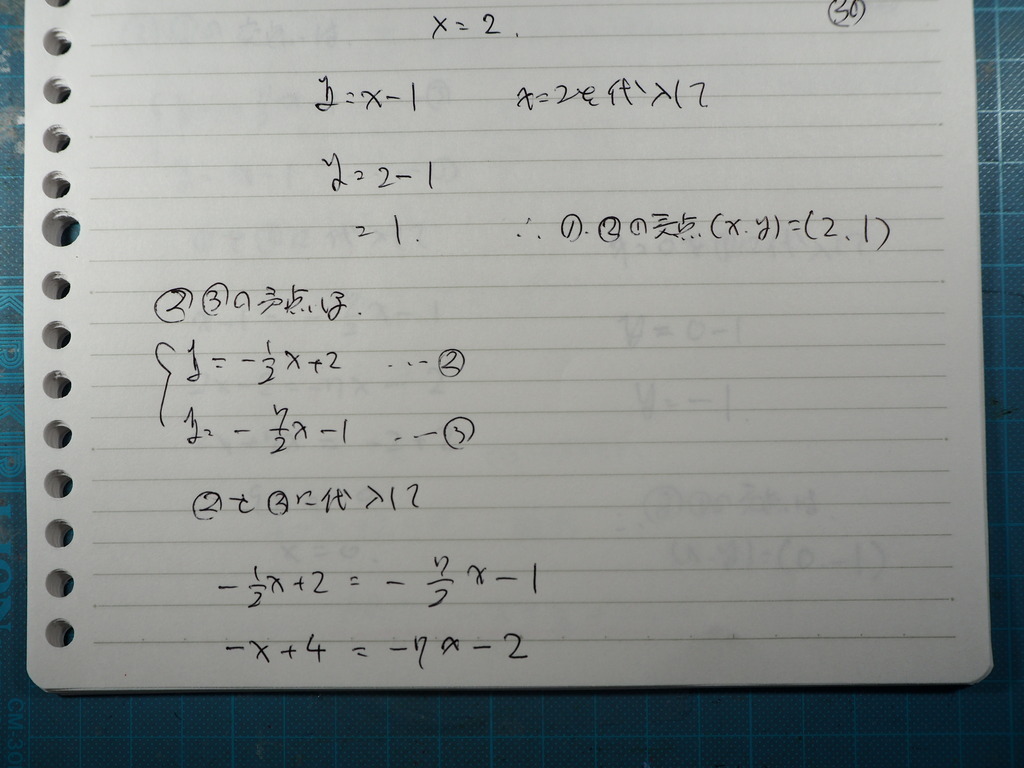 ㉚
x = 2.
y = x - 1　x = 2を代入して
y = 2 - 1
= 1.　∴ ①.②の交点.(x.y)=(2.1)
②③の交点は.
y = -1/2x + 2 ... ②
y = -7/2x - 1 ... ③
②を③に代入して
-1/2x + 2 = -7/2x - 1
-x + 4 = -7x - 2